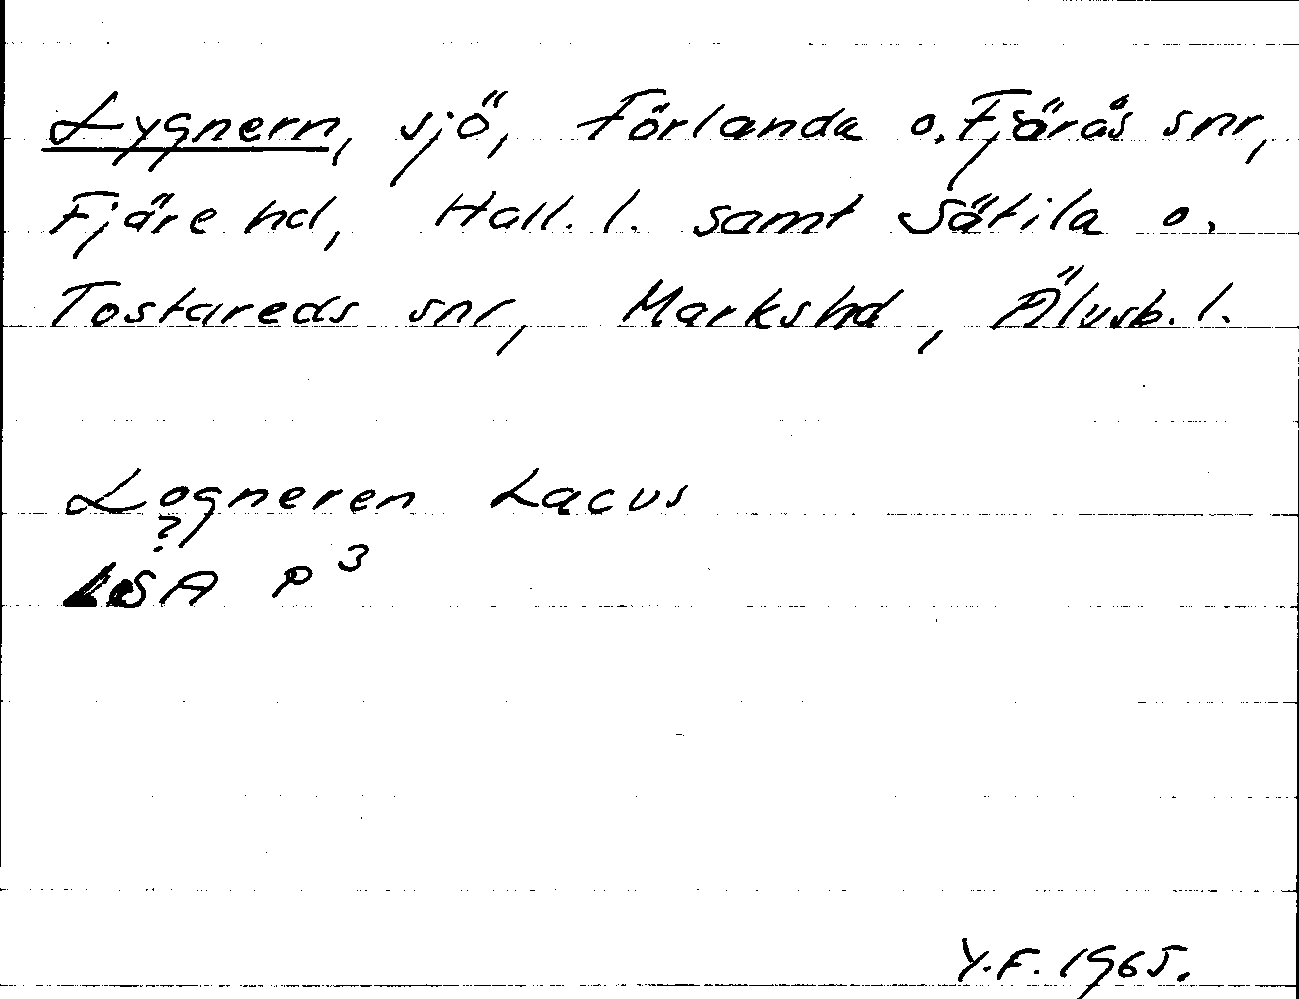 Lygnern, sjö, Förlanda o. Fjärås snr,
Fjäre hd, Hall. l. samt Sätila o.
Tostareds snr, Markshd, Älvsb. l.
Logneren Lacus
?
LSA P 3
Y.F. 1965.